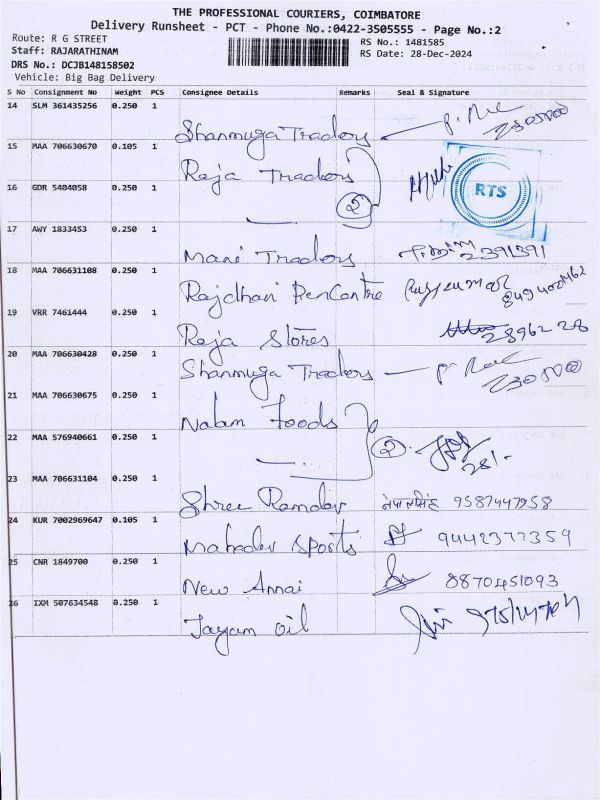 THE PROFESSIONAL COURIERS, COIMBATORE
Delivery Runsheet - PCT - Phone No.:0422-3505555 - Page No.:2
Route: R G STREET
Staff: RAJARATHINAM
DRS No.: DCJB148158502
Vehicle: Big Bag Delivery
RS No.: 1481585
RS Date: 28-Dec-2024
S No Consignment No Weight PCS Consignee Details Remarks Seal & Signature
14 SLM 361435256 0.250 1
Shanmuga Traders
15 MAA 706630670 0.105 1
Raja Traders
RTS
16 GDR 5404058 0.250 1
2
17 AWY 1833453 0.250 1
Mani Traders 2391391
18 MAA 706631108 0.250 1
Rajdhani Pen Centre
19 VRR 7461444 0.250 1
Raja Stores
20 MAA 706630428 0.250 1
Shanmuga Traders
21 MAA 706630675 0.250 1
Nalam Foods
22 MAA 576940661 0.250 1
2
23 MAA 706631104 0.250 1
Shree Ramdev 9587447958
24 KUR 7002969647 0.105 1
Mahadev Sports 9442377359
25 CNR 1849700 0.250 1
New Annai 8870451093
26 IXM 507634548 0.250 1
Jayam oil